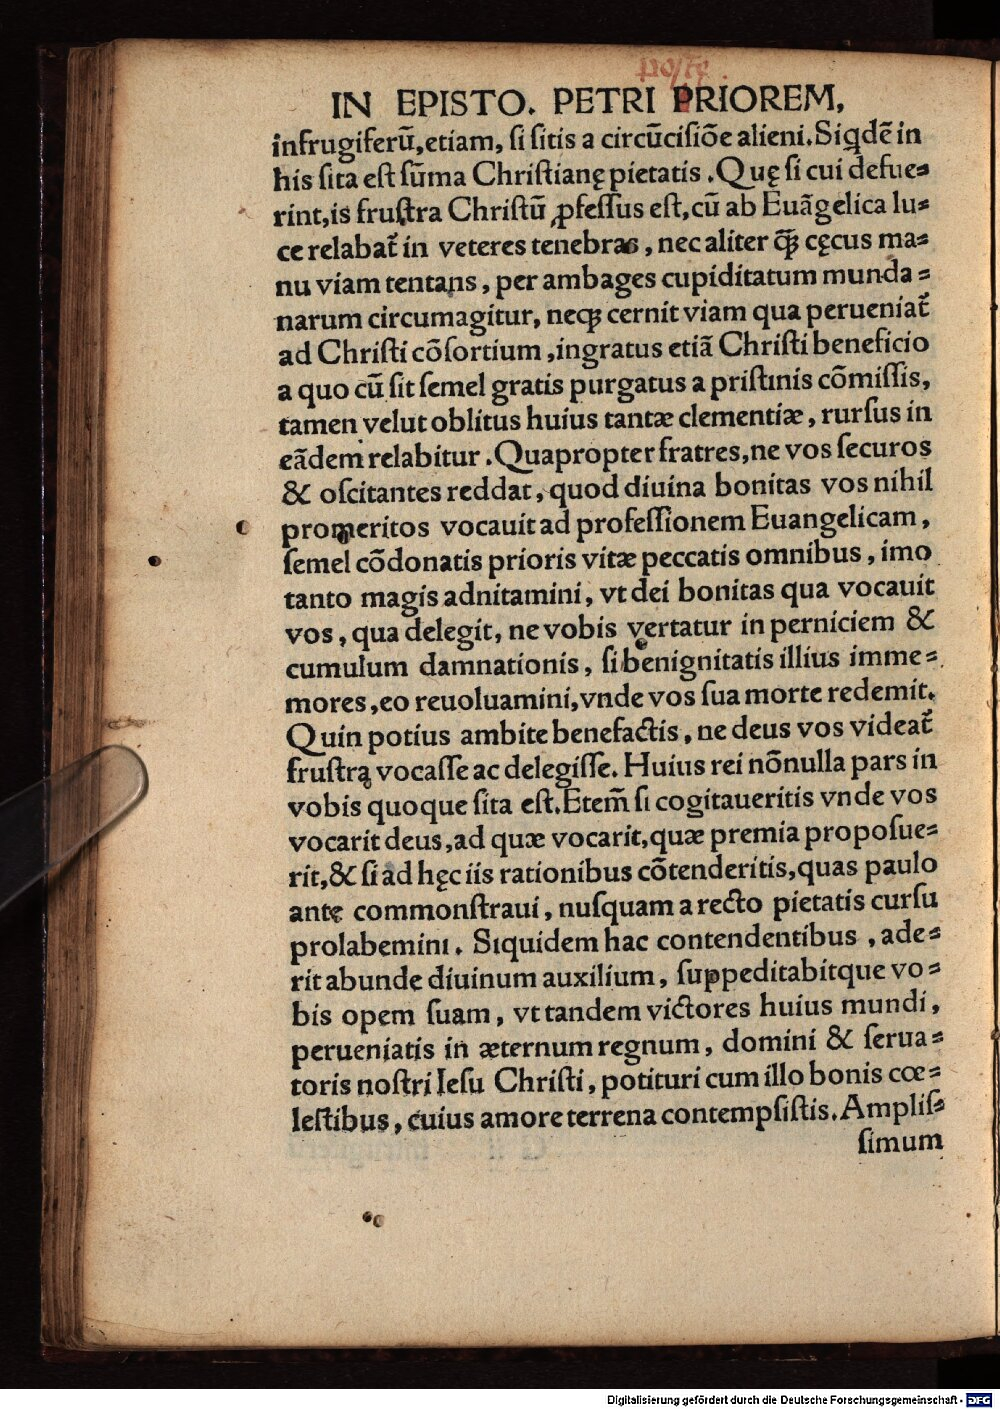 poste.
IN EPISTO. PETRI PRIOREM,
infrugiferũ,etiam, ſi ſitis a circũciſiõe alieni.Siqdẽ in
his ſita eſt ſũma Chriſtianę pietatis .Quę ſi cui defue⸗
rint,is fruſtra Chriſtũ ꝓfeſſus eſt,cũ ab Euãgelica lu⸗
ce relabat᷑ in veteres tenebras , nec aliter ꝙ̃ cęcus ma⸗
nu viam tentans , per ambages cupiditatum munda⸗
narum circumagitur, neqꝫ cernit viam qua perueniat᷑
ad Chriſti cõſortium ,ingratus etiã Chriſti beneficio
a quo cũ ſit ſemel gratis purgatus a priſtinis cõmiſſis,
tamen velut oblitus huius tantæ clementiæ , rurſus in
eãdem relabitur .Quapropter fratres,ne vos ſecuros
& oſcitantes reddat , quod diuina bonitas vos nihil
promeritos vocauit ad profeſſionem Euangelicam ,
ſemel cõdonatis prioris vitæ peccatis omnibus , imo
tanto magis adnitamini , vt dei bonitas qua vocauit
vos , qua delegit, ne vobis vertatur in perniciem &
cumulum damnationis , ſi benignitatis illius imme⸗
mores ,eo reuoluamini,vnde vos ſua morte redemit.
Quin potius ambite benefactis , ne deus vos videat᷑
fruſtra vocaſſe ac delegiſſe. Huius rei nõnulla pars in
vobis quoque ſita eſt.Etem̃ ſi cogitaueritis vnde vos
vocarit deus,ad quæ vocarit,quæ premia propoſue⸗
rit,& ſi ad hęc iis rationibus cõtenderitis,quas paulo
ante commonſtraui , nuſquam a recto pietatis curſu
prolabemini. Siquidem hac contendentibus , ade⸗
rit abunde diuinum auxilium , ſuppeditabitque vo⸗
bis opem ſuam , vt tandem victores huius mundi ,
perueniatis in æternum regnum , domini & ſerua⸗
toris noſtri Ieſu Chriſti , potituri cum illo bonis cœ⸗
leſtibus , cuius amore terrena contempſiſtis. Ampliſ⸗
ſimum
Digitalisierung gefördert durch die Deutsche Forschungsgemeinschaft - DFG